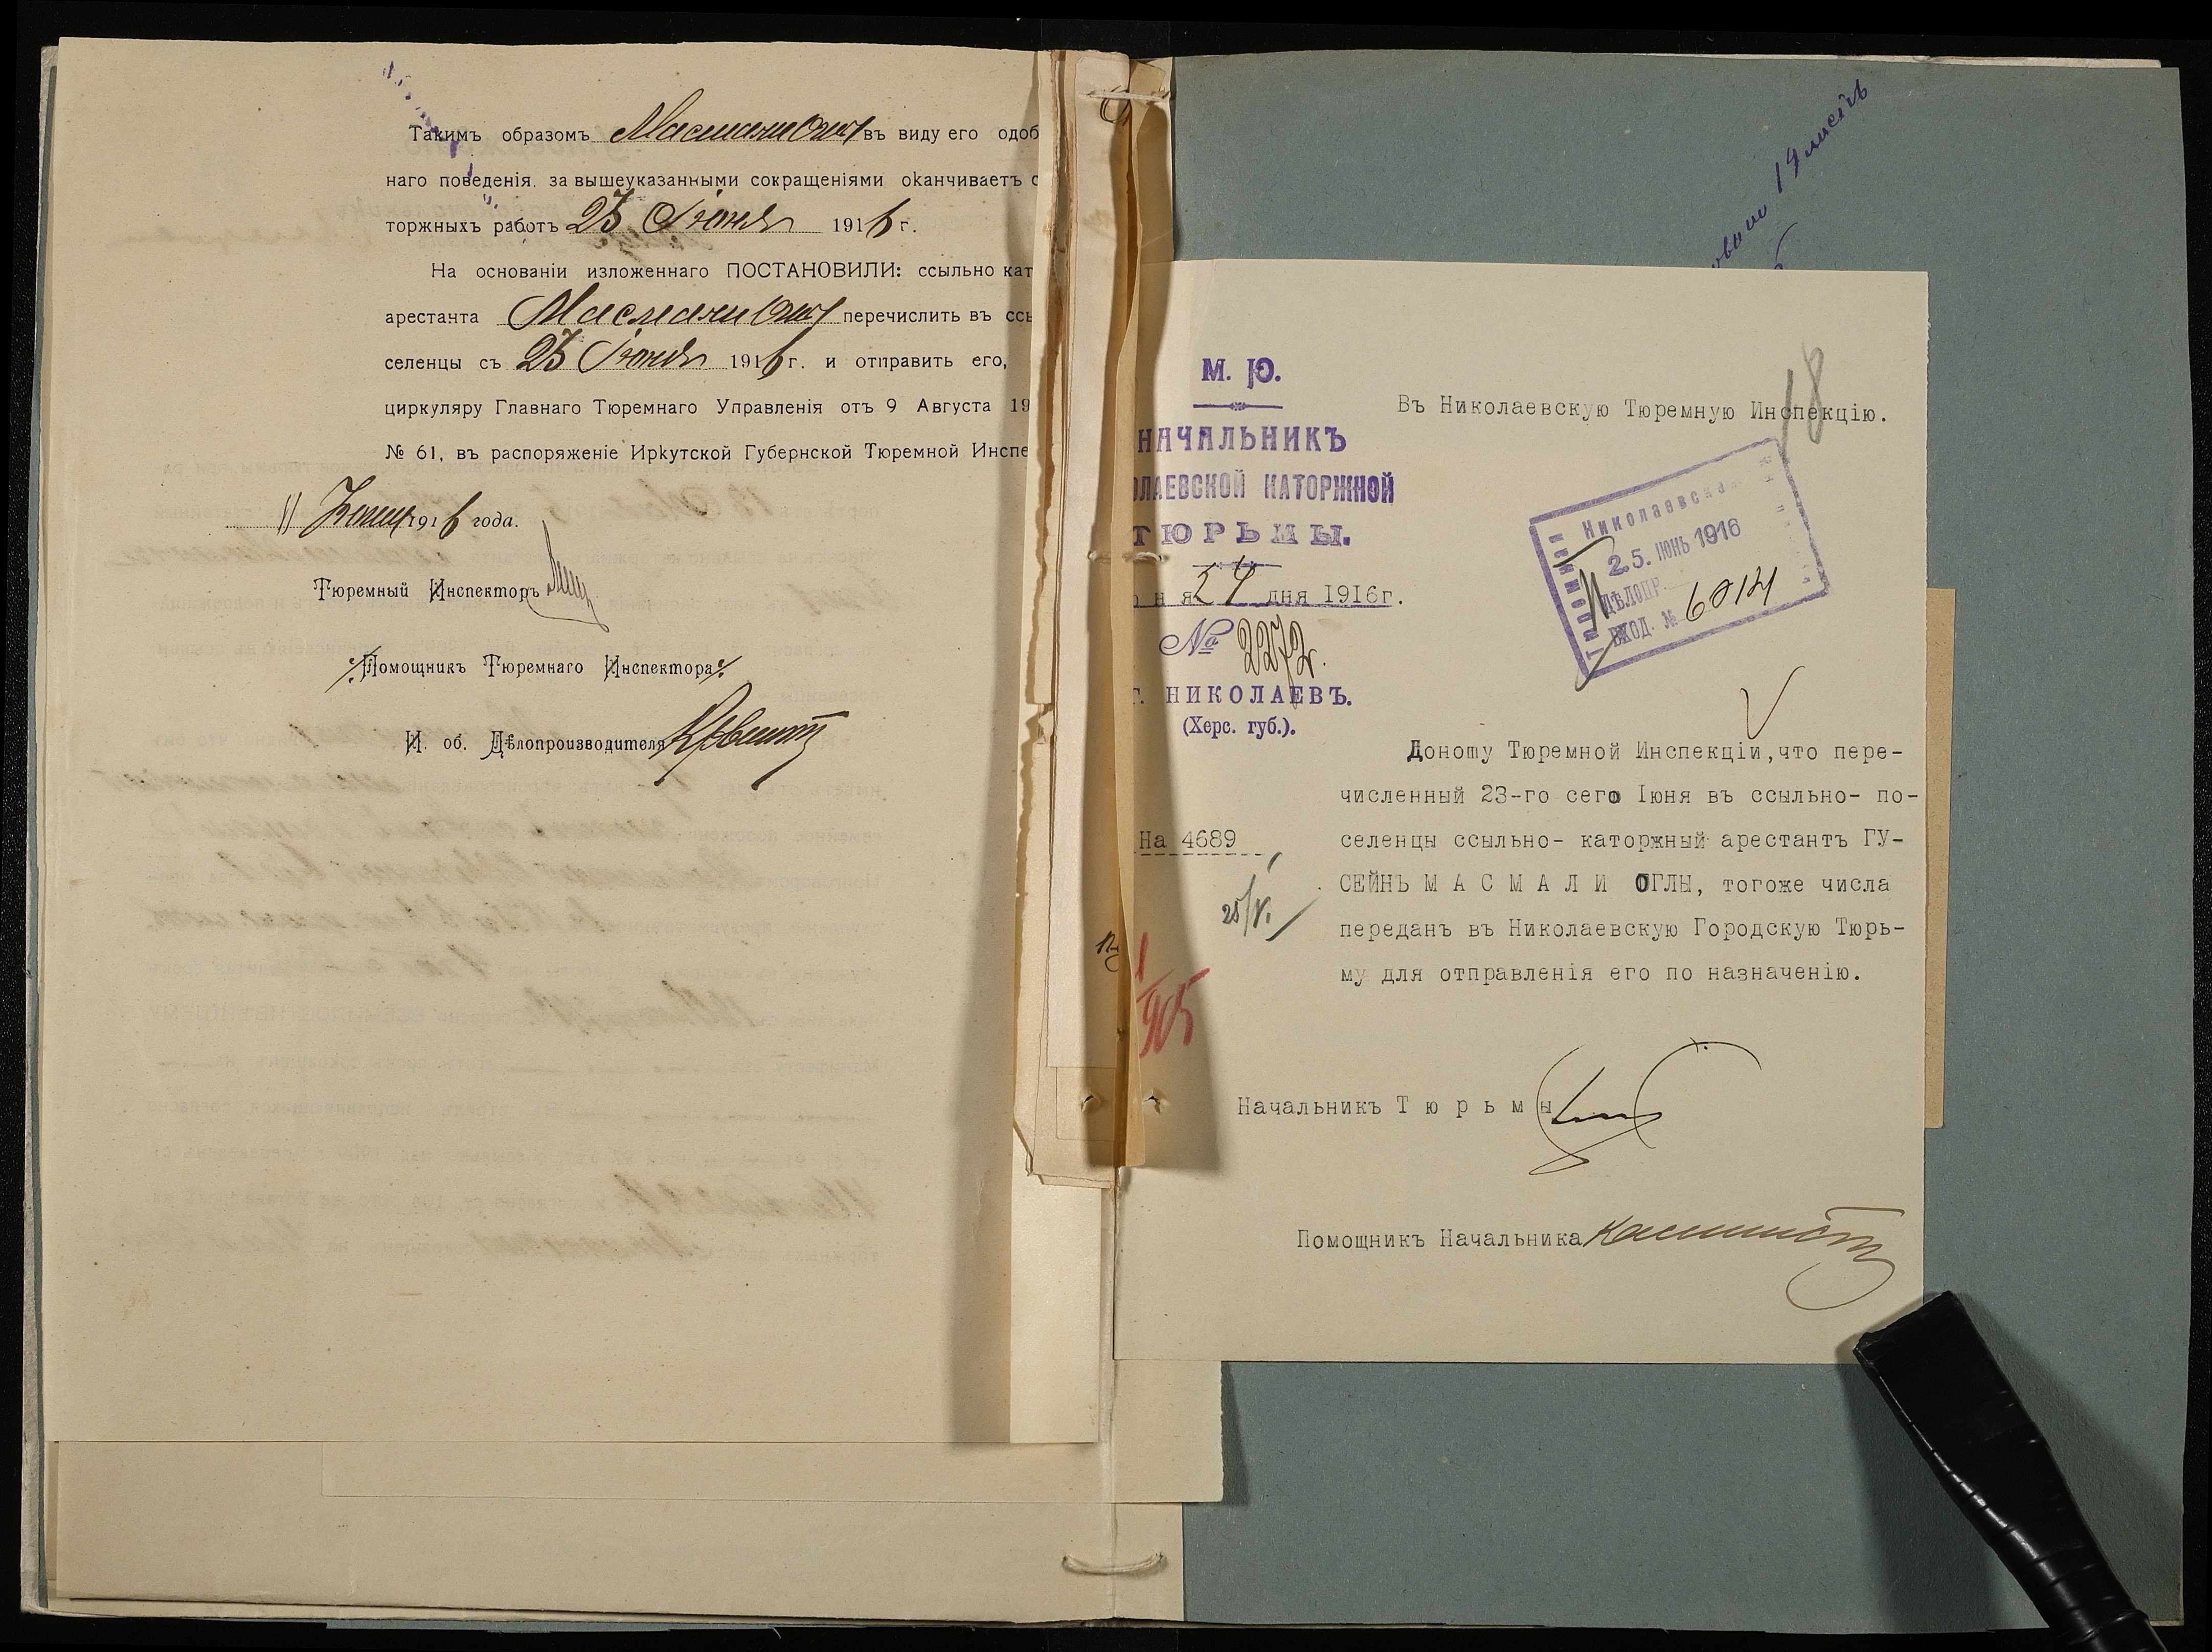 Такимъ образомъ Масмали Оглы въ виду его одоб
наго поведенія. за вышеуказанными сокращеніями оканчиваетъ с
торжныхъ работъ 23 Іюня 1916 г.
На основаніи изложеннаго ПОСТАНОВИЛИ: ссыльно кат
арестанта Масмали Оглы перечислить въ ссы
селенцы съ 23 Іюня 1916 г. и отправить его,
циркуляру Главнаго Тюремнаго Управленія отъ 9 Августа 19
№ 61, въ распоряженіе Иркутской Губернской Тюремной Инспе
11 Іюня 1916 года.
Тюремный Инспекторъ
Помощникъ Тюремнаго Инспектора
И. об. Дѣлопроизводителя
листъ
18
М. Ю.
НАЧАЛЬНИКЪ
ОЛАЕВСКОЙ КАТОРЖНОЙ
ТЮРЬМЫ.
ня 24 дня 1916г.
№ 2272.
г. НИКОЛАЕВЪ.
(Херс. губ.).
На 4689
25/VI
1/905
Въ Николаевскую Тюремную Инспекцію.
Николаевская
Тюремная
25. ІЮНЬ 1916
ДѢЛОПР.
ВХОД. № 6014
Доношу Тюремной Инспекціи,что пере-
численный 23-го сего Іюня въ ссыльно- по-
селенцы ссыльно- каторжный арестантъ ГУ-
СЕЙНЪ М А С М А Л И ОГЛЫ, тогоже числа
переданъ въ Николаевскую Городскую Тюрь-
му для отправленія его по назначенію.
Начальникъ Т ю р ь м ы
Помощникъ Начальника